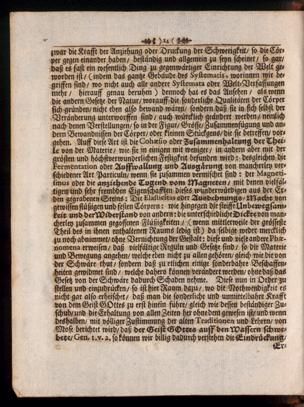 24
zwar die Krafft der Anziehung oder Druckung der Schwerigkeit / so die Cör-
per gegen einander haben / beständig und allgemein zu seyn scheinet / so gar /
daß es fast ein wesentlich Ding zu gegenwärtiger Einrichtung der Welt ge-
worden ist / (indem das gantze Gebäude des Systematis, worinnen wir be-
griffen sind / wo nicht auch alle andere Systemata oder Welt-Verfassungen
mehr / hierauff genau beruhen) dennoch hat es das Ansehen / als wenn
die andern Gesetze der Natur / worauff die sonderliche Qualitäten der Cörper
sich gründen / nicht eben also bewand wären / sondern daß sie in sich selbst der
Veränderung unterworffen sind / auch würcklich geändert werden /
nach denen Vorstellungen / so in der Figur / Grösse / Zusammenfügung und an-
dern Verwandnissen der Cörper / oder kleinen Stückgens / die sie betreffen / vor-
gehen. Auff diese Art ist die Cohæsio oder Zusammenhaltung der Thei-
le von der Materie / wie sie in einigen mit weniger / in andern aber mit der
grösten und höchstverwunderlichen Festigkeit befunden wird: desgleichen die
Fermentation oder Auffwallung und Ausgärung von mancherley ver-
schiedener Art Particuln / wenn sie zusammen vermischet sind: der Magnetis-
mus oder die anziehende Tugend von Magneten / mit denen vielfälti-
gen und sehr fremden Eigenschafften dieses wunderwürdigen aus der Er-
den gegrabenen Steins: Die Elasticität oder Ausdehnungs-Macht von
gewissen flüßigen und festen Cörpern: wie hingegen die steiffe Unbeweglig-
keit und der Widerstand von andern: die unterschiedliche Dicke von man-
cherley zusammen gegossenen Flüßigkeiten / (wenn mittlerweile der gröste
Theil des in ihnen enthaltenen Raums ledig ist) da selbige weder mercklich
zu noch abnimmet / ohne Vermischung der Gestalt: diese und viele andere Phæ-
nomena erweisen / daß vielfältige Reguln und Gesetze sind / so die Materie
und Bewegung angehen / welche eben nicht zu allen gehören / gleich wie die von
der Schwäre thut / sondern daß zu etlichen einige sonderbahre Beschaffen-
heiten gewidmet sind / welche dahero können verändert werden / ohne daß das
Gesetz von der Schwäre dadurch Schaden nehme. Diese nun in Order zu
stellen und einzudrücken / so ist hier Raum dazu / wo die Nothwendigkeit es
nicht gar also erheischet / daß man die sonderliche und unmittelbahre Krafft
von dem Geist GOttes zu erst hierin führe / gleich wie dessen beständiger Zu-
schub / und die Erhaltung von allen Zeiten her ohne dem gewesen ist / und wenn
deshalben / mit völliger Zustimmung der alten Traditionen und Lehren / von
Mose berichtet wird / daß der Geist GOttes auff den Wassern schwe-
bete / Gen. 1. v. 2. so können wir billig dadurch verstehen die Eindrückung /